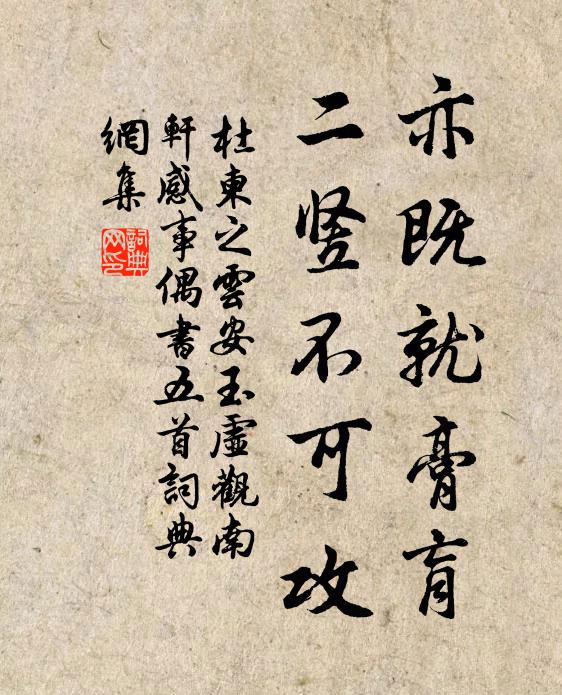 亦既就膏肓
二竖不可攻
杜東之雲安玉虛觀南
軒感事偶書五首詞典
網集
詞典
网印